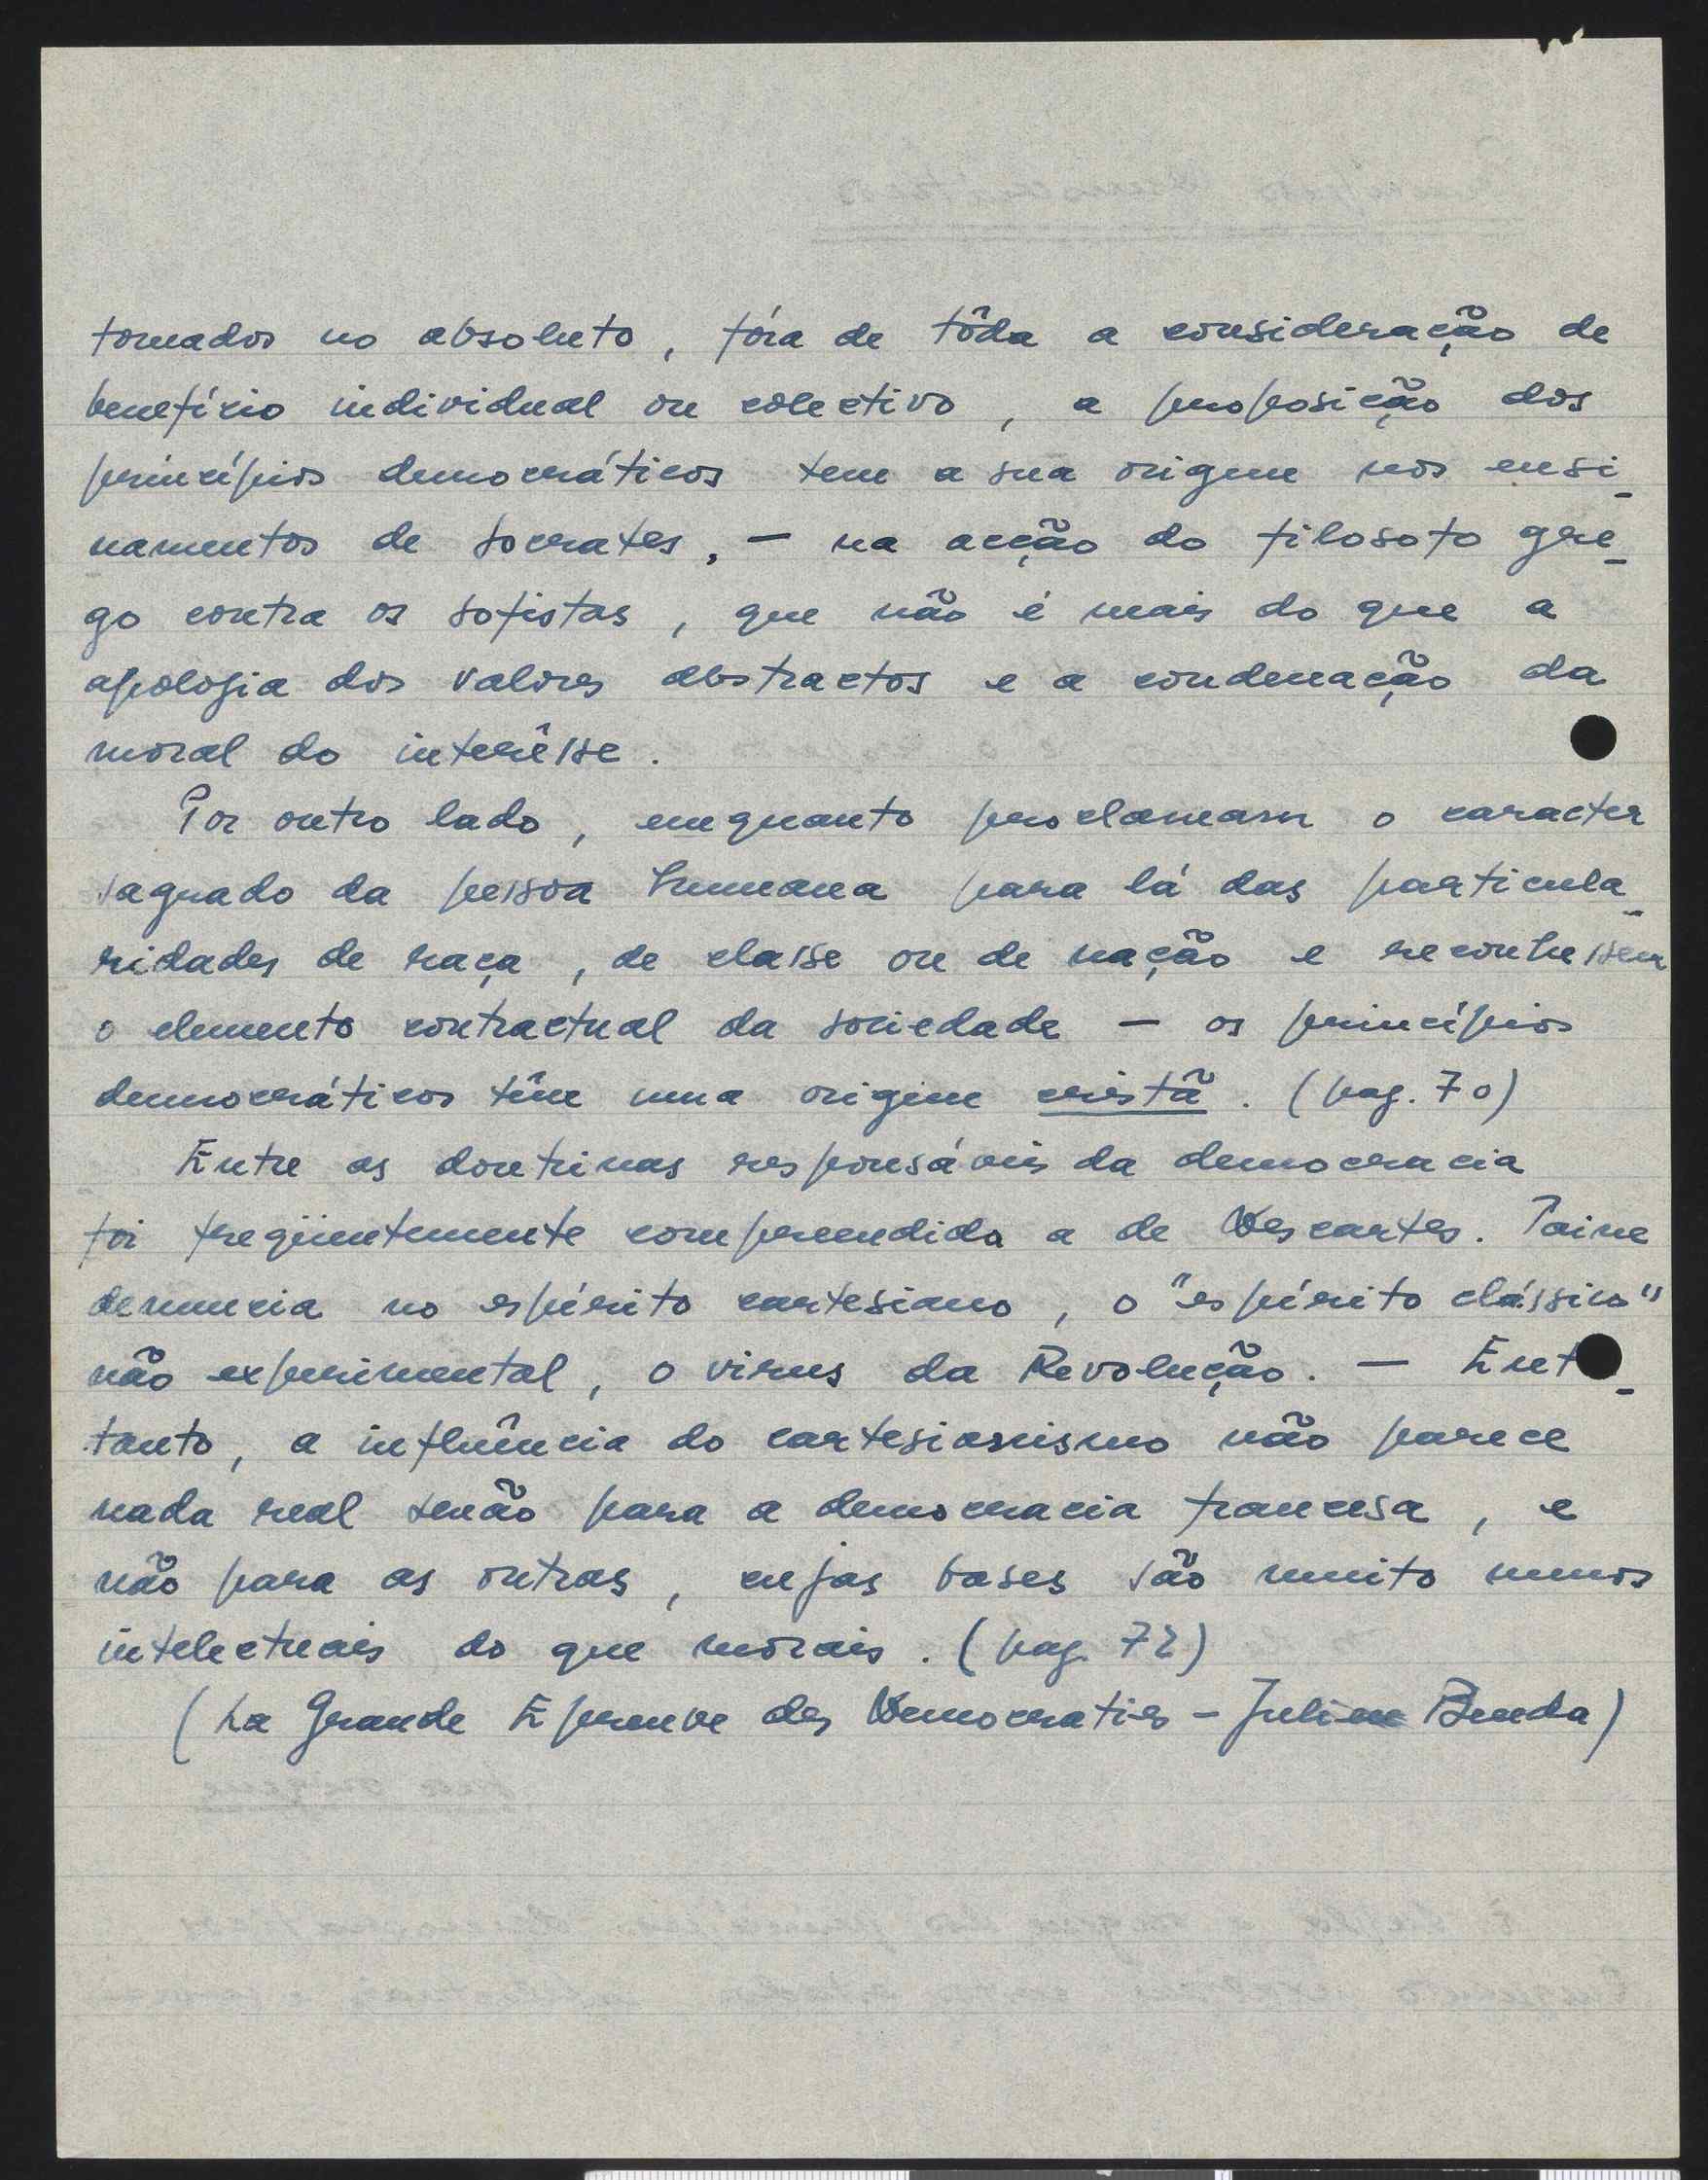 tomados no absoluto, fóra de tôda a consideração de
benefício individual ou colectivo, a proposição dos
princípios democráticos tem a sua origem nos ensi-
namentos de Socrates, — na acção do filosofo gre-
go contra os sofistas, que não é mais do que a
apologia dos valores abstractos e a condenação da
moral do interêsse.
Por outro lado, emquanto proclamam o caracter
sagrado da pessoa humana para lá das particula-
ridades de raça, de classe ou de nação e reconhessem
o elemento contractual da sociedade — os princípios
democráticos têm uma origem cristã. (pag. 70)
Entre as doutrinas responsáveis da democracia
foi freqüentemente compreendida a de Descartes. Taine
denuncia no espírito cartesiano, o "espírito clássico"
não experimental, o virus da Revolução. — Ent
tanto, a influência do cartesianismo não parece
nada real senão para a democracia francesa, e
não para as outras, cujas bases são muito menos
intelectuais do que morais. (pag. 72)
(La Grande Epreuve des Democraties - Julien Benda)